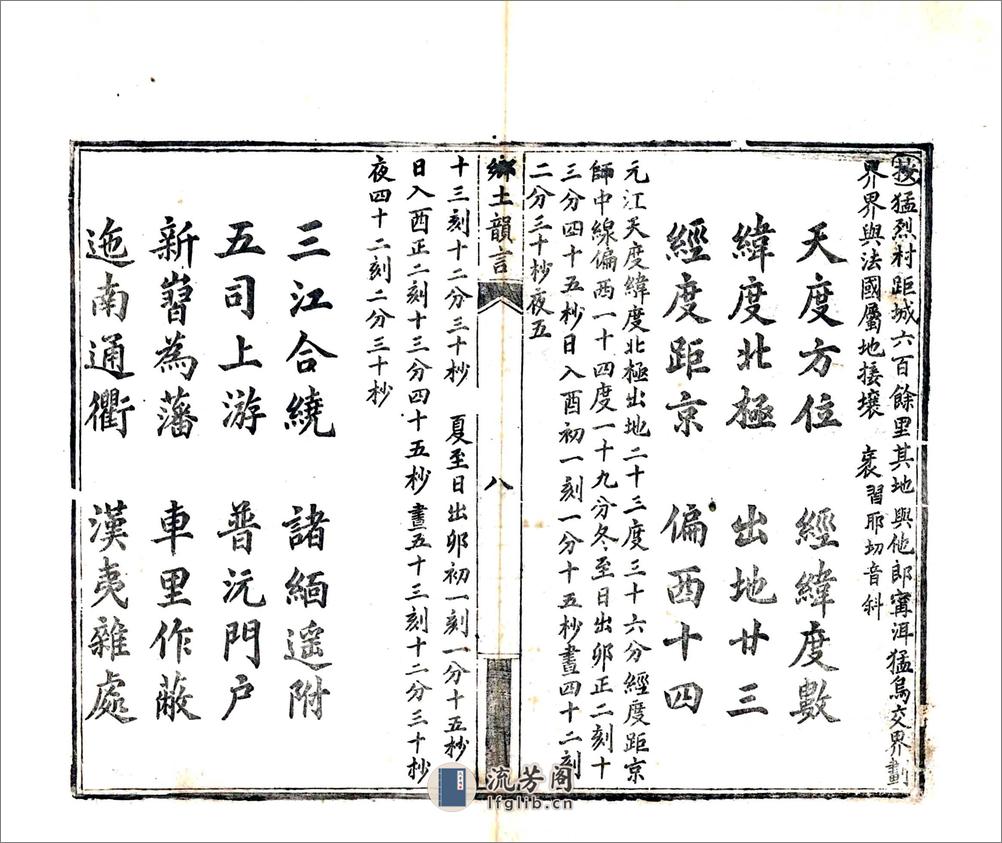 按猛烈村距城六百餘里其地與他郎甯洱猛烏交界劃
界界與法國屬地接壤　袤習耶切音科
天度方位　經緯度數
緯度北極　出地廿三
經度距京　偏西十四
元江天度緯度北極出地二十三度三十六分經度距京
師中線偏西一十四度一十九分冬至日出卯正二刻十
三分四十五秒日入酉初一刻一分十五秒晝四十二刻
二分三十秒夜五
鄉土韻言
八
十三刻十二分三十秒　夏至日出卯初一刻一分十五秒
日入酉正二刻十三分四十五秒　晝五十三刻十二分三十秒
夜四十二刻二分三十秒
三江合繞　諸緬遥附
五司上游　普沅門户
新嶍為藩　車里作蔽
迤南通衢　漢夷雜處
流芳阁
lfglib.cn